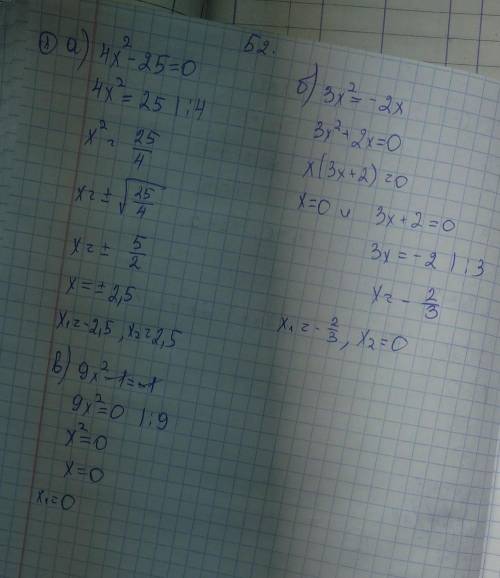 52.
① а) 4x² - 25 = 0
4x² = 25 | :4
x² = 25/4
x = ± √(25/4)
x = ± 5/2
x = ± 2,5
x₁ = -2,5, x₂ = 2,5
б) 3x² = -2x
3x² + 2x = 0
x(3x + 2) = 0
x = 0 и 3x + 2 = 0
3x = -2 | :3
x = - 2/3
x₁ = - 2/3, x₂ = 0
в) 9x² - 1 = -1
9x² = 0 | :9
x² = 0
x = 0
x₁ = 0